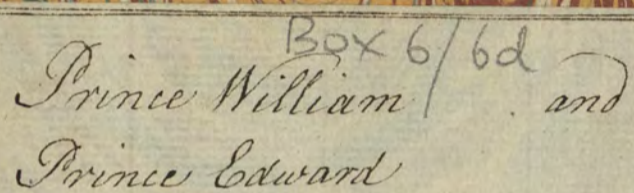 Box 6/6d
Prince William and
Prince Edward